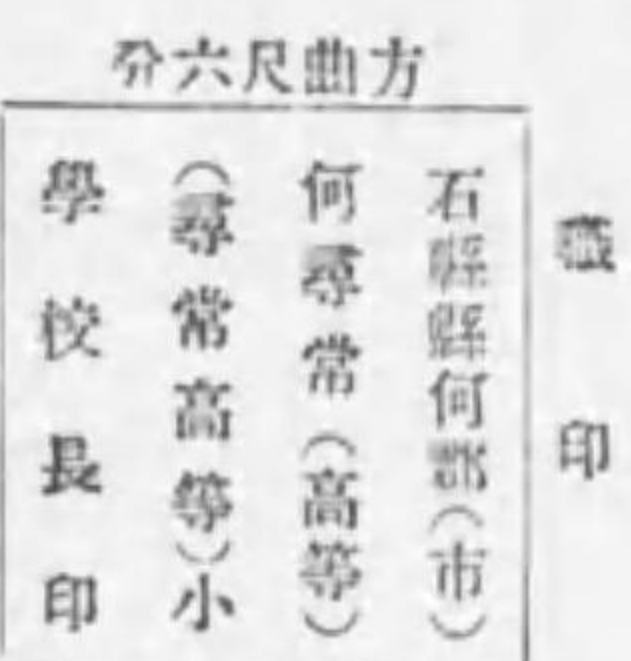 職印
方曲尺六分
石縣縣何郡（市）
何尋常（高等）
（尋常高等）小
學校長印